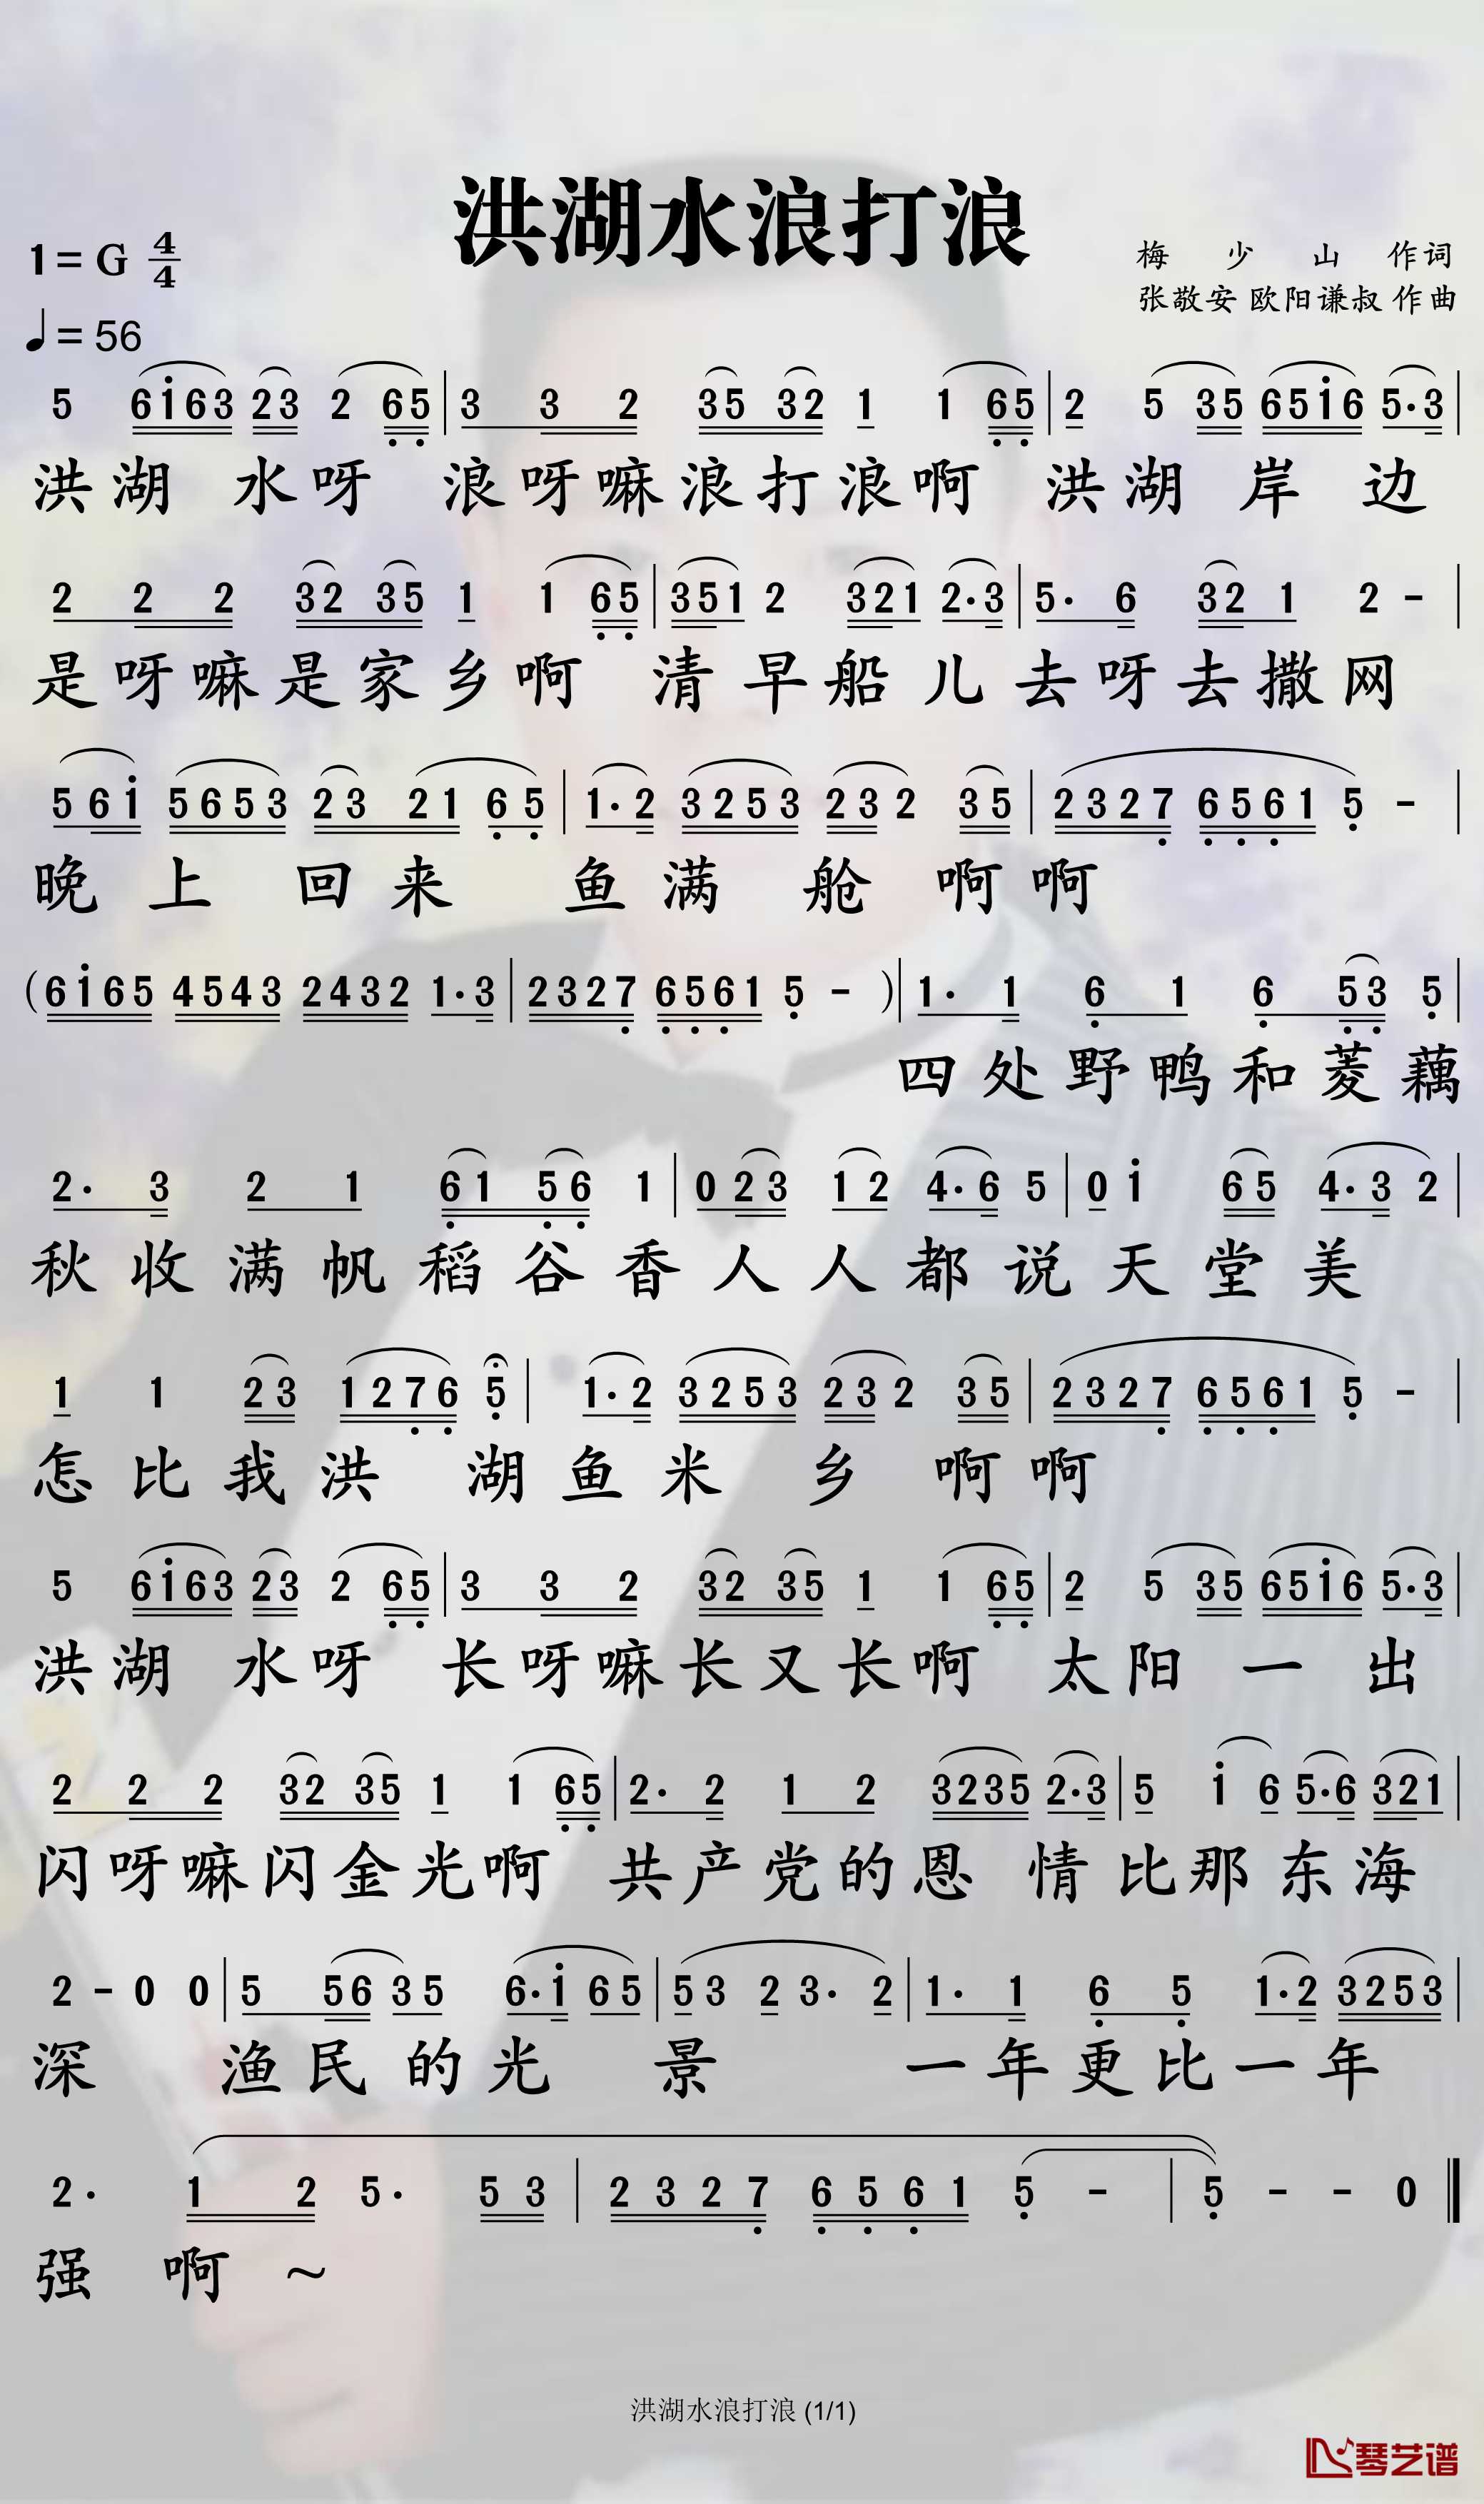 洪湖水浪打浪
1=G 4/4
梅少山 作词
张敬安 欧阳谦叔 作曲
♩=56
5 6i63 23 2 65 | 3 3 2 35 32 1 1 65 | 2 5 35 65i6 5·3 |
洪湖 水呀 浪呀嘛浪打浪啊 洪湖 岸 边
2 2 2 32 35 1 1 65 | 351 2 321 2·3 | 5· 6 32 1 2 - |
是呀嘛是家乡啊 清早船儿去呀去撒网
5 6 i 5653 23 21 6 5 | 1·2 3253 23 2 35 | 2327 6561 5 - |
晚上 回来 鱼满 舱 啊啊
(6i65 4543 2432 1·3 | 2327 6561 5 - ) | 1· 1 6 1 6 53 5 |
四处野鸭和菱藕
2· 3 2 1 61 56 1 | 0 23 12 4·6 5 | 0 i 65 4·3 2 |
秋收满帆稻谷香人人都说天堂美
1 1 23 1276 5 | 1·2 3253 23 2 35 | 2327 6561 5 - |
怎比我洪 湖鱼米 乡 啊啊
5 6i63 23 2 65 | 3 3 2 32 35 1 1 65 | 2 5 35 65i6 5·3 |
洪湖 水呀 长呀嘛长又长啊 太阳 一 出
2 2 2 32 35 1 1 65 | 2· 2 1 2 3235 2·3 | 5 i 6 5·6 321 |
闪呀嘛闪金光啊 共产党的恩 情比那东海
2 - 0 0 | 5 56 35 6·i 65 | 5 3 2 3· 2 | 1· 1 6 5 1·2 3253 |
深 渔民的光 景 一年更比一年
2· 1 2 5· 5 3 | 2 3 2 7 6 5 6 1 5 - | 5 - - 0
强 啊 ~
洪湖水浪打浪 (1/1)
琴艺谱